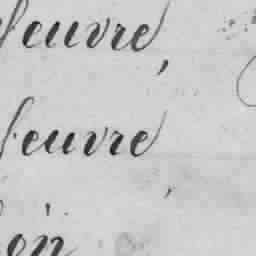 feuvre,
feuvre,
on